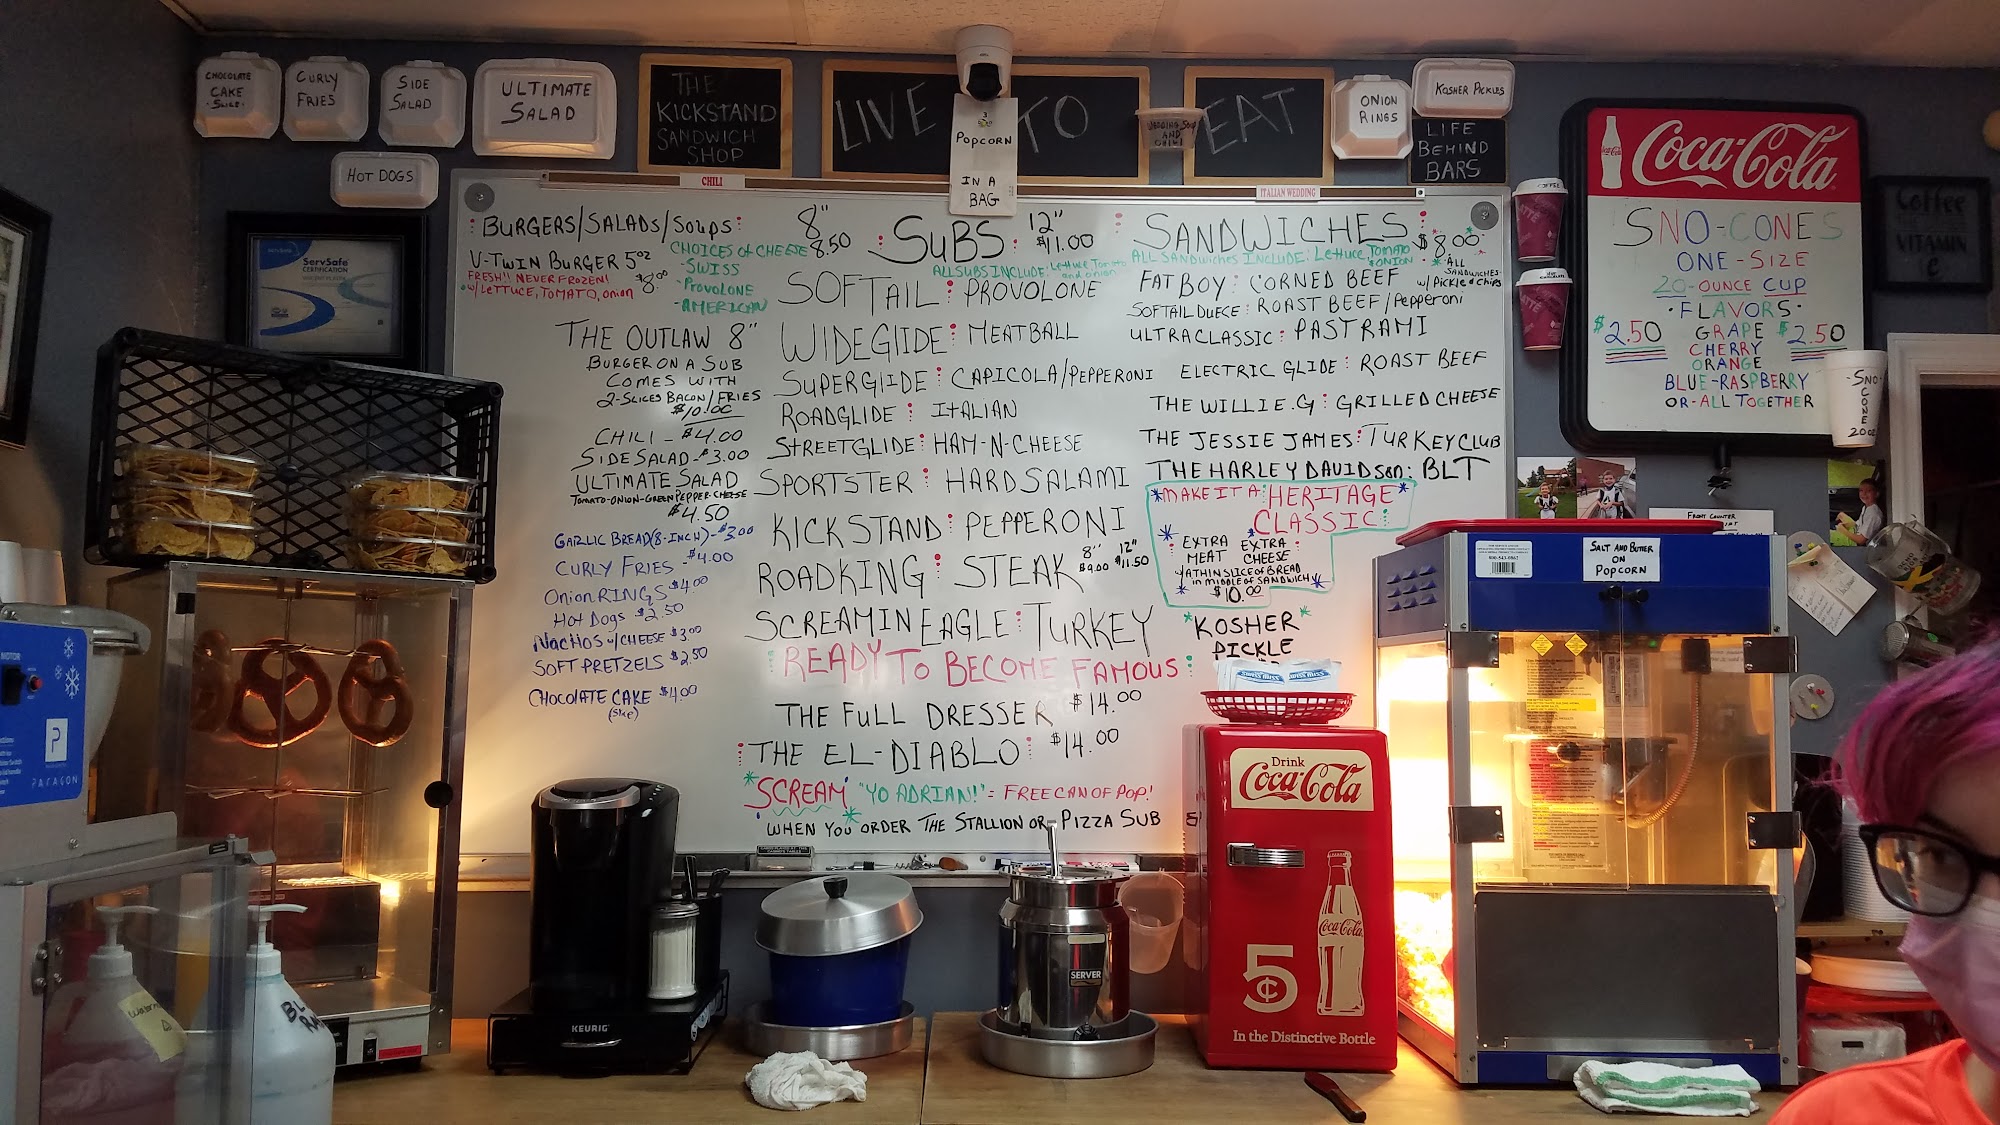 CHOCOLATE
CAKE
-SLICE-
CURLY
FRIES
SIDE
SALAD
ULTIMATE
SALAD
HOT DOGS
THE
KICKSTAND
SANDWICH
SHOP
LIVE TO EAT
3
POPCORN
IN A
BAG
AND
ONION
RINGS
KOSHER PICKLES
LIFE
BEHIND
BARS
CHILI
ITALIAN WEDDING
ServSafe
CERTIFICATION
BURGERS/SALADS/SOUPS:
V-TWIN BURGER 5oz
FRESH!! NEVER FROZEN!
w/LETTUCE, TOMATO, onion
$8.00
CHOICES of CHEESE
-SWISS
-PROVOLONE
-AMERICAN
THE OUTLAW 8"
BURGER ON A SUB
COMES WITH
2-SLICES BACON/FRIES
$10.00
CHILI - $4.00
SIDE SALAD - $3.00
ULTIMATE SALAD
TOMATO-ONION-GREEN PEPPER-CHEESE
$4.50
GARLIC BREAD (8-INCH) - $3.00
CURLY FRIES - $4.00
Onion RINGS $4.00
HOT DOGS $2.50
NACHOS w/CHEESE $3.00
SOFT PRETZELS $2.50
CHOCOLATE CAKE $4.00
8" SUBS 12"
8.50 $11.00
ALL SUBS INCLUDE: Lettuce Tomato
and onion
SOFTAIL: PROVOLONE
WIDEGLIDE: MEATBALL
SUPERGLIDE: CAPICOLA/PEPPERONI
ROADGLIDE: ITALIAN
STREETGLIDE: HAM-N-CHEESE
SPORTSTER: HARD SALAMI
KICKSTAND: PEPPERONI
ROADKING: STEAK 8" $9.00 12" $11.50
SCREAMIN EAGLE: TURKEY
READY TO BECOME FAMOUS:
THE FULL DRESSER $14.00
THE EL-DIABLO: $14.00
SCREAM "YO ADRIAN!" = FREE CAN OF POP!
WHEN YOU ORDER THE STALLION OR PIZZA SUB
SANDWICHES: $8.00
ALL SANDWICHES INCLUDE: Lettuce, Tomato
& ONION
ALL
SANDWICHES
w/Pickle & Chips
FAT BOY: CORNED BEEF
SOFTAIL DUECE: ROAST BEEF/Pepperoni
ULTRACLASSIC: PASTRAMI
ELECTRIC GLIDE: ROAST BEEF
THE WILLIE.G: GRILLED CHEESE
THE JESSIE JAMES: TURKEY CLUB
THE HARLEY DAVIDSON: BLT
*MAKE IT A HERITAGE*
CLASSIC:
EXTRA EXTRA
MEAT CHEESE
w/A THIN SLICE OF BREAD
in middle of SANDWICH
$10.00
*KOSHER*
PICKLE
Coca-Cola
SNO-CONES
ONE-SIZE
20-OUNCE CUP
-FLAVORS-
$2.50 GRAPE $2.50
CHERRY
ORANGE
BLUE-RASPBERRY
OR-ALL TOGETHER
-SNO-
CONE
20oz
COFFEE
Coffee
VITAMIN
FRONT COUNTER
SALT AND BUTTER
ON
POPCORN
SWISS MISS
SWISS MISS
Drink
Coca-Cola
Coca-Cola
5¢
In the Distinctive Bottle
SERVER
KEURIG
P
PARAGON